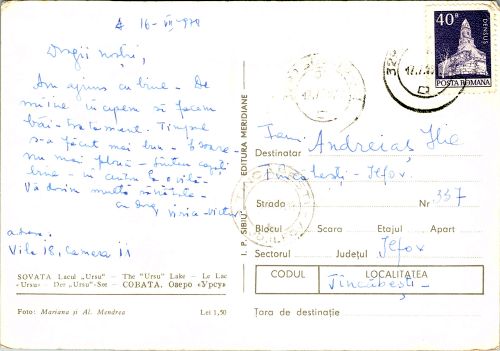 16-VII-979
Dragii noștri,
Am ajuns cu bine - De
mîine începem să facem
băi-tratament. Timpul
s-a făcut mai bun -
nu mai plouă - sîntem cazați
bine - în centru la o vilă -
Vă dorim multă sănătate -
cu drag
Vila 18, Camera 11
SOVATA Lacul „Ursu" — The "Ursu" Lake — Le Lac
«Ursu» — Der „Ursu"-See — СОВАТА. Озеро «Урсу»
Foto: Mariana și Al. Mendrea Lei 1,50
I. P. SIBIU EDITURA MERIDIANE
40B
DENSUȘ
POSTA ROMANA
Fam.
Destinatar Andreiaș Ilie
Tîncăbești - Ilfov
Strada Nr 357
Blocul Scara Etajul Apart
Sectorul Județul Ilfov
CODUL LOCALITATEA
Tîncăbești -
Țara de destinație